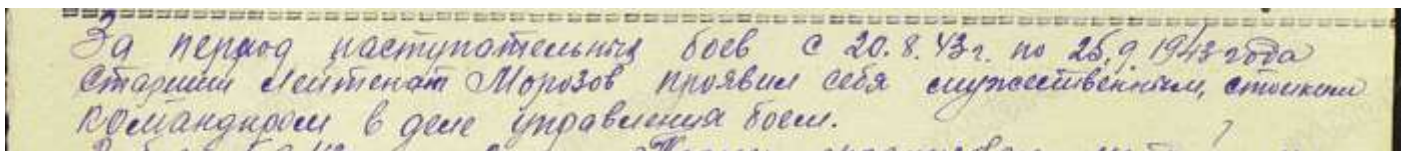 За период наступательных боев с 20.8.43г. по 25.9.1943 года
старший лейтенант Морозов проявил себя мужественным, стойким
командиром в деле управления боем.